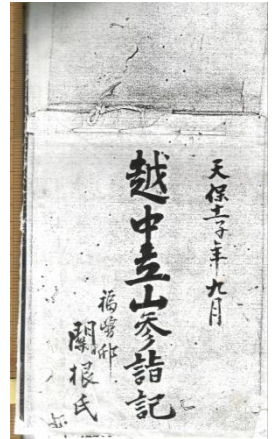 天保十一子年 九月
越中立山参詣記
福 邨
關根氏